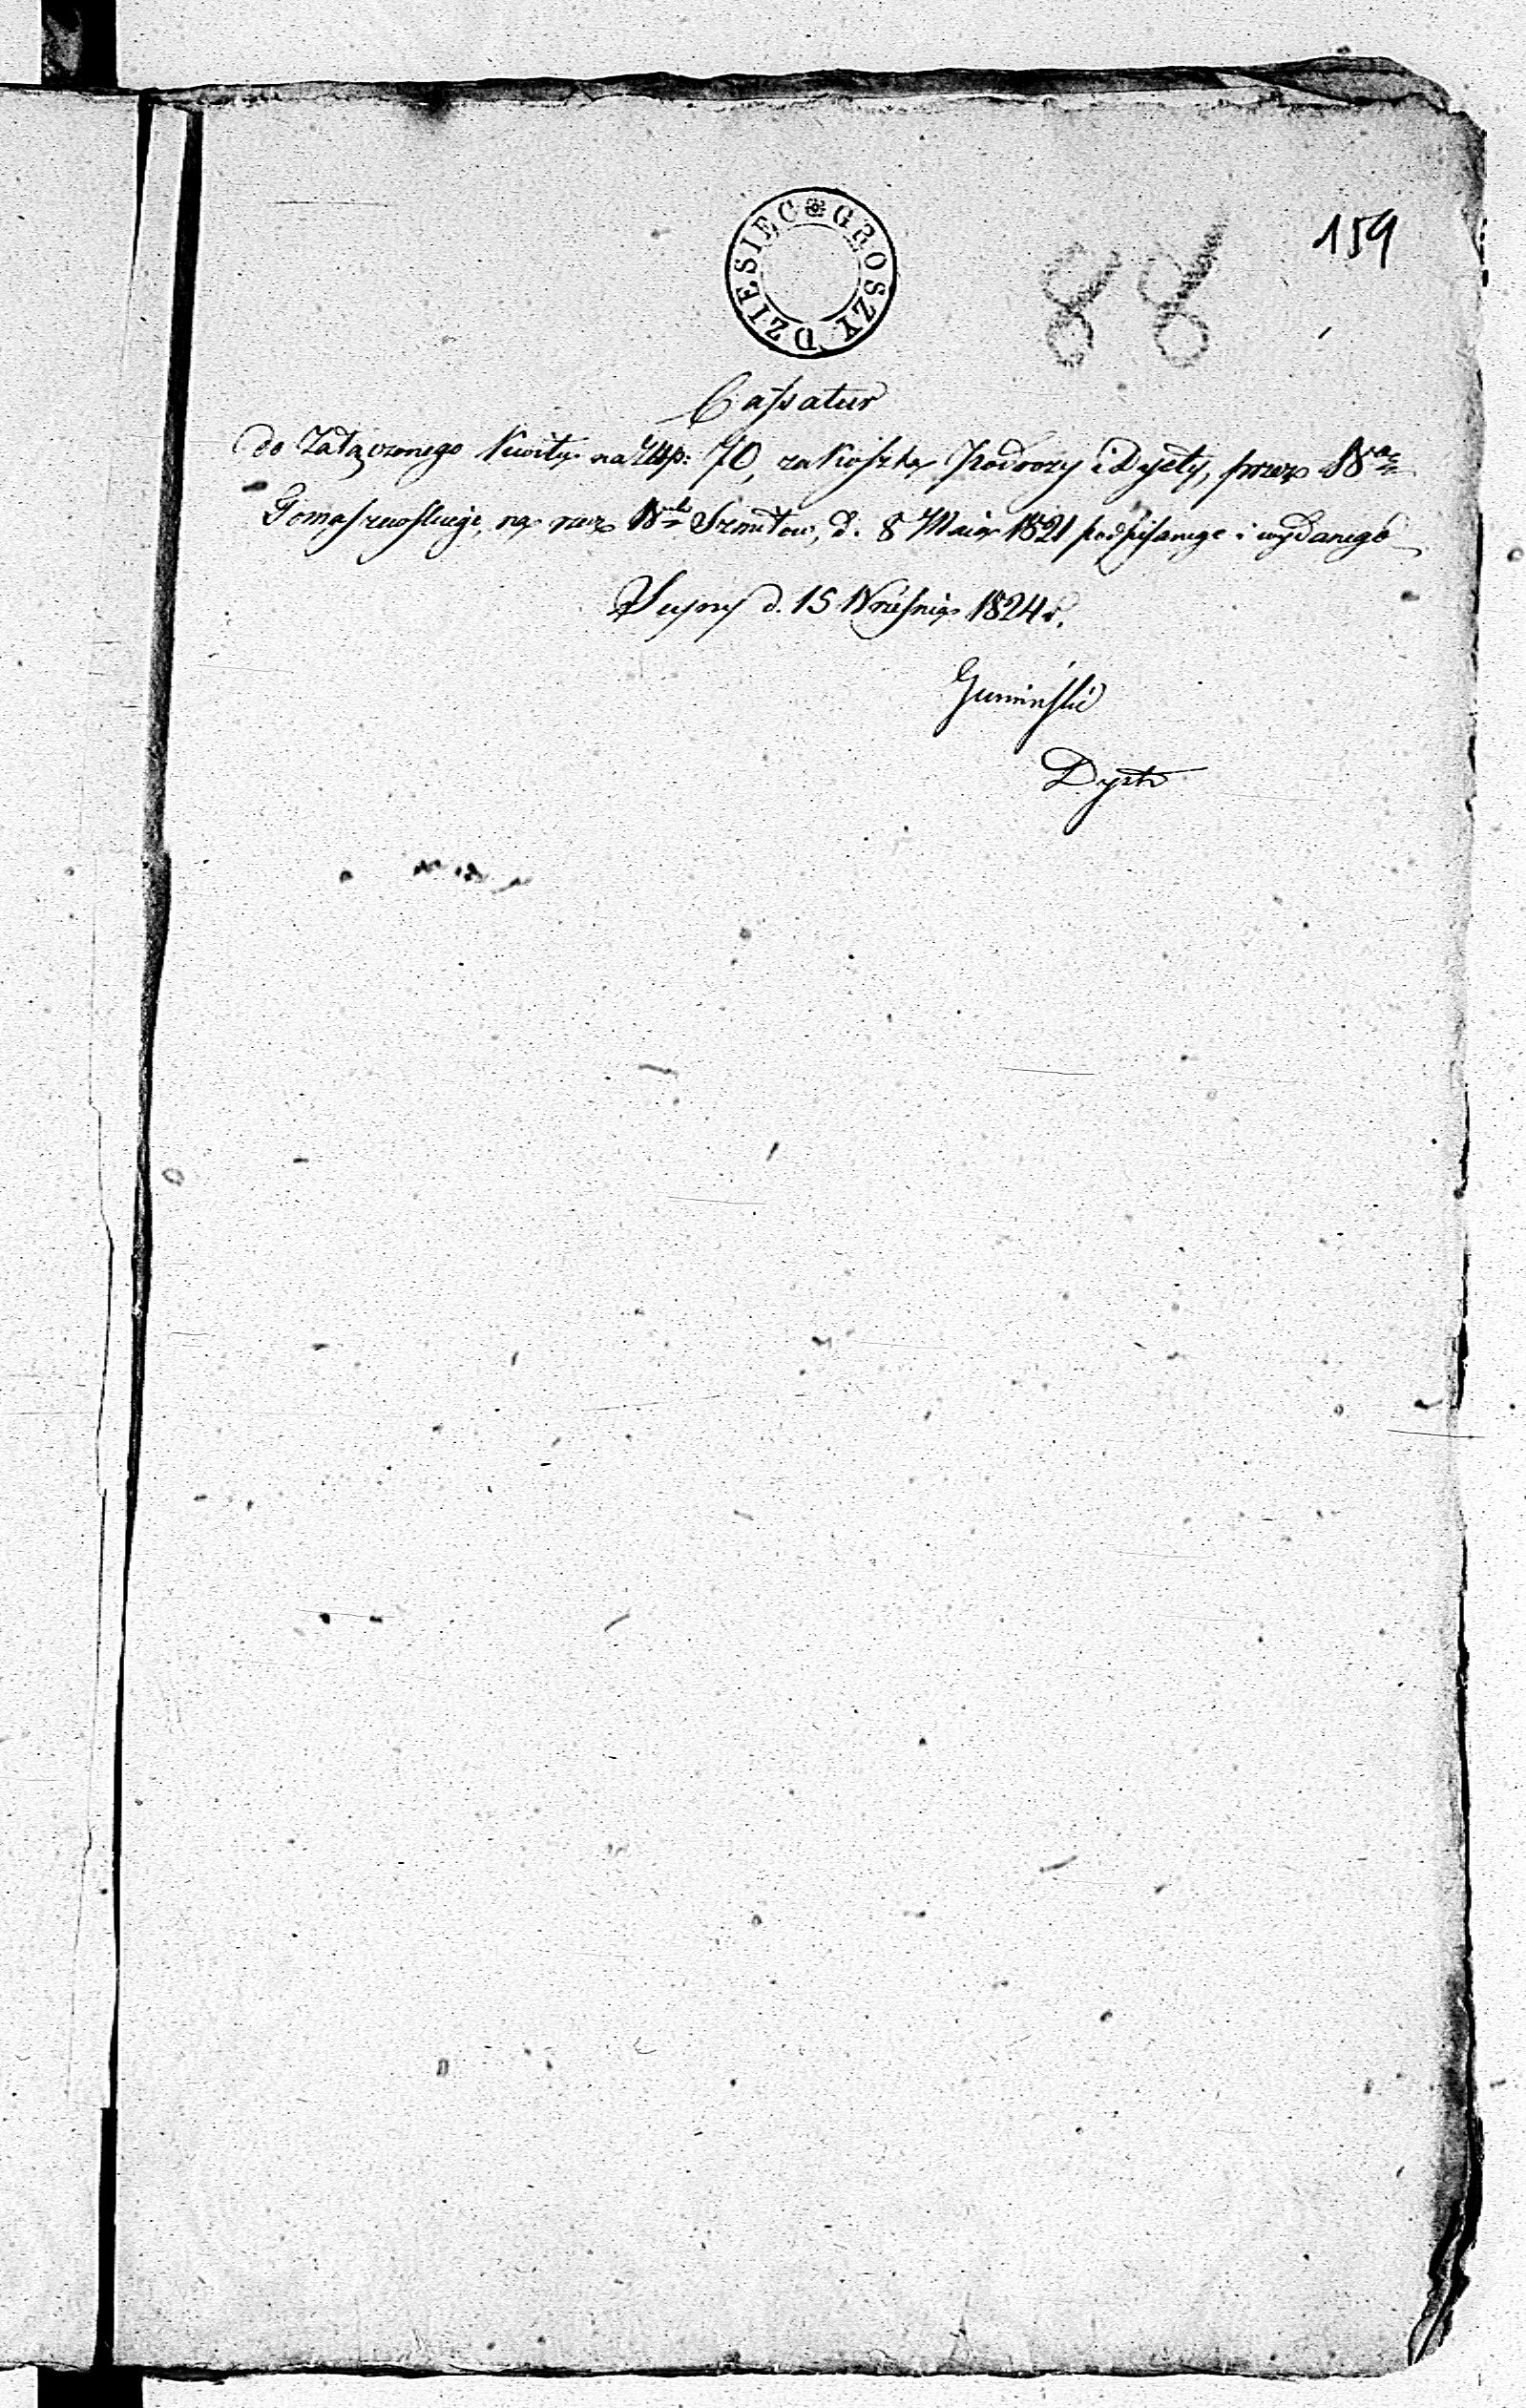 DZIESIĘC GROSZY
159
88
Cassatur
do Załączonego Kwitu na Złłp: 70, za Koszta Podrozy i Dyety, przez
Tomaszewskiego, na rzecz Szmitow, d. 8 Maia 1821 podpisanego i wydanego
Seyny d. 15 Wrzesnia 1824 r.
Gumiński
Dystr